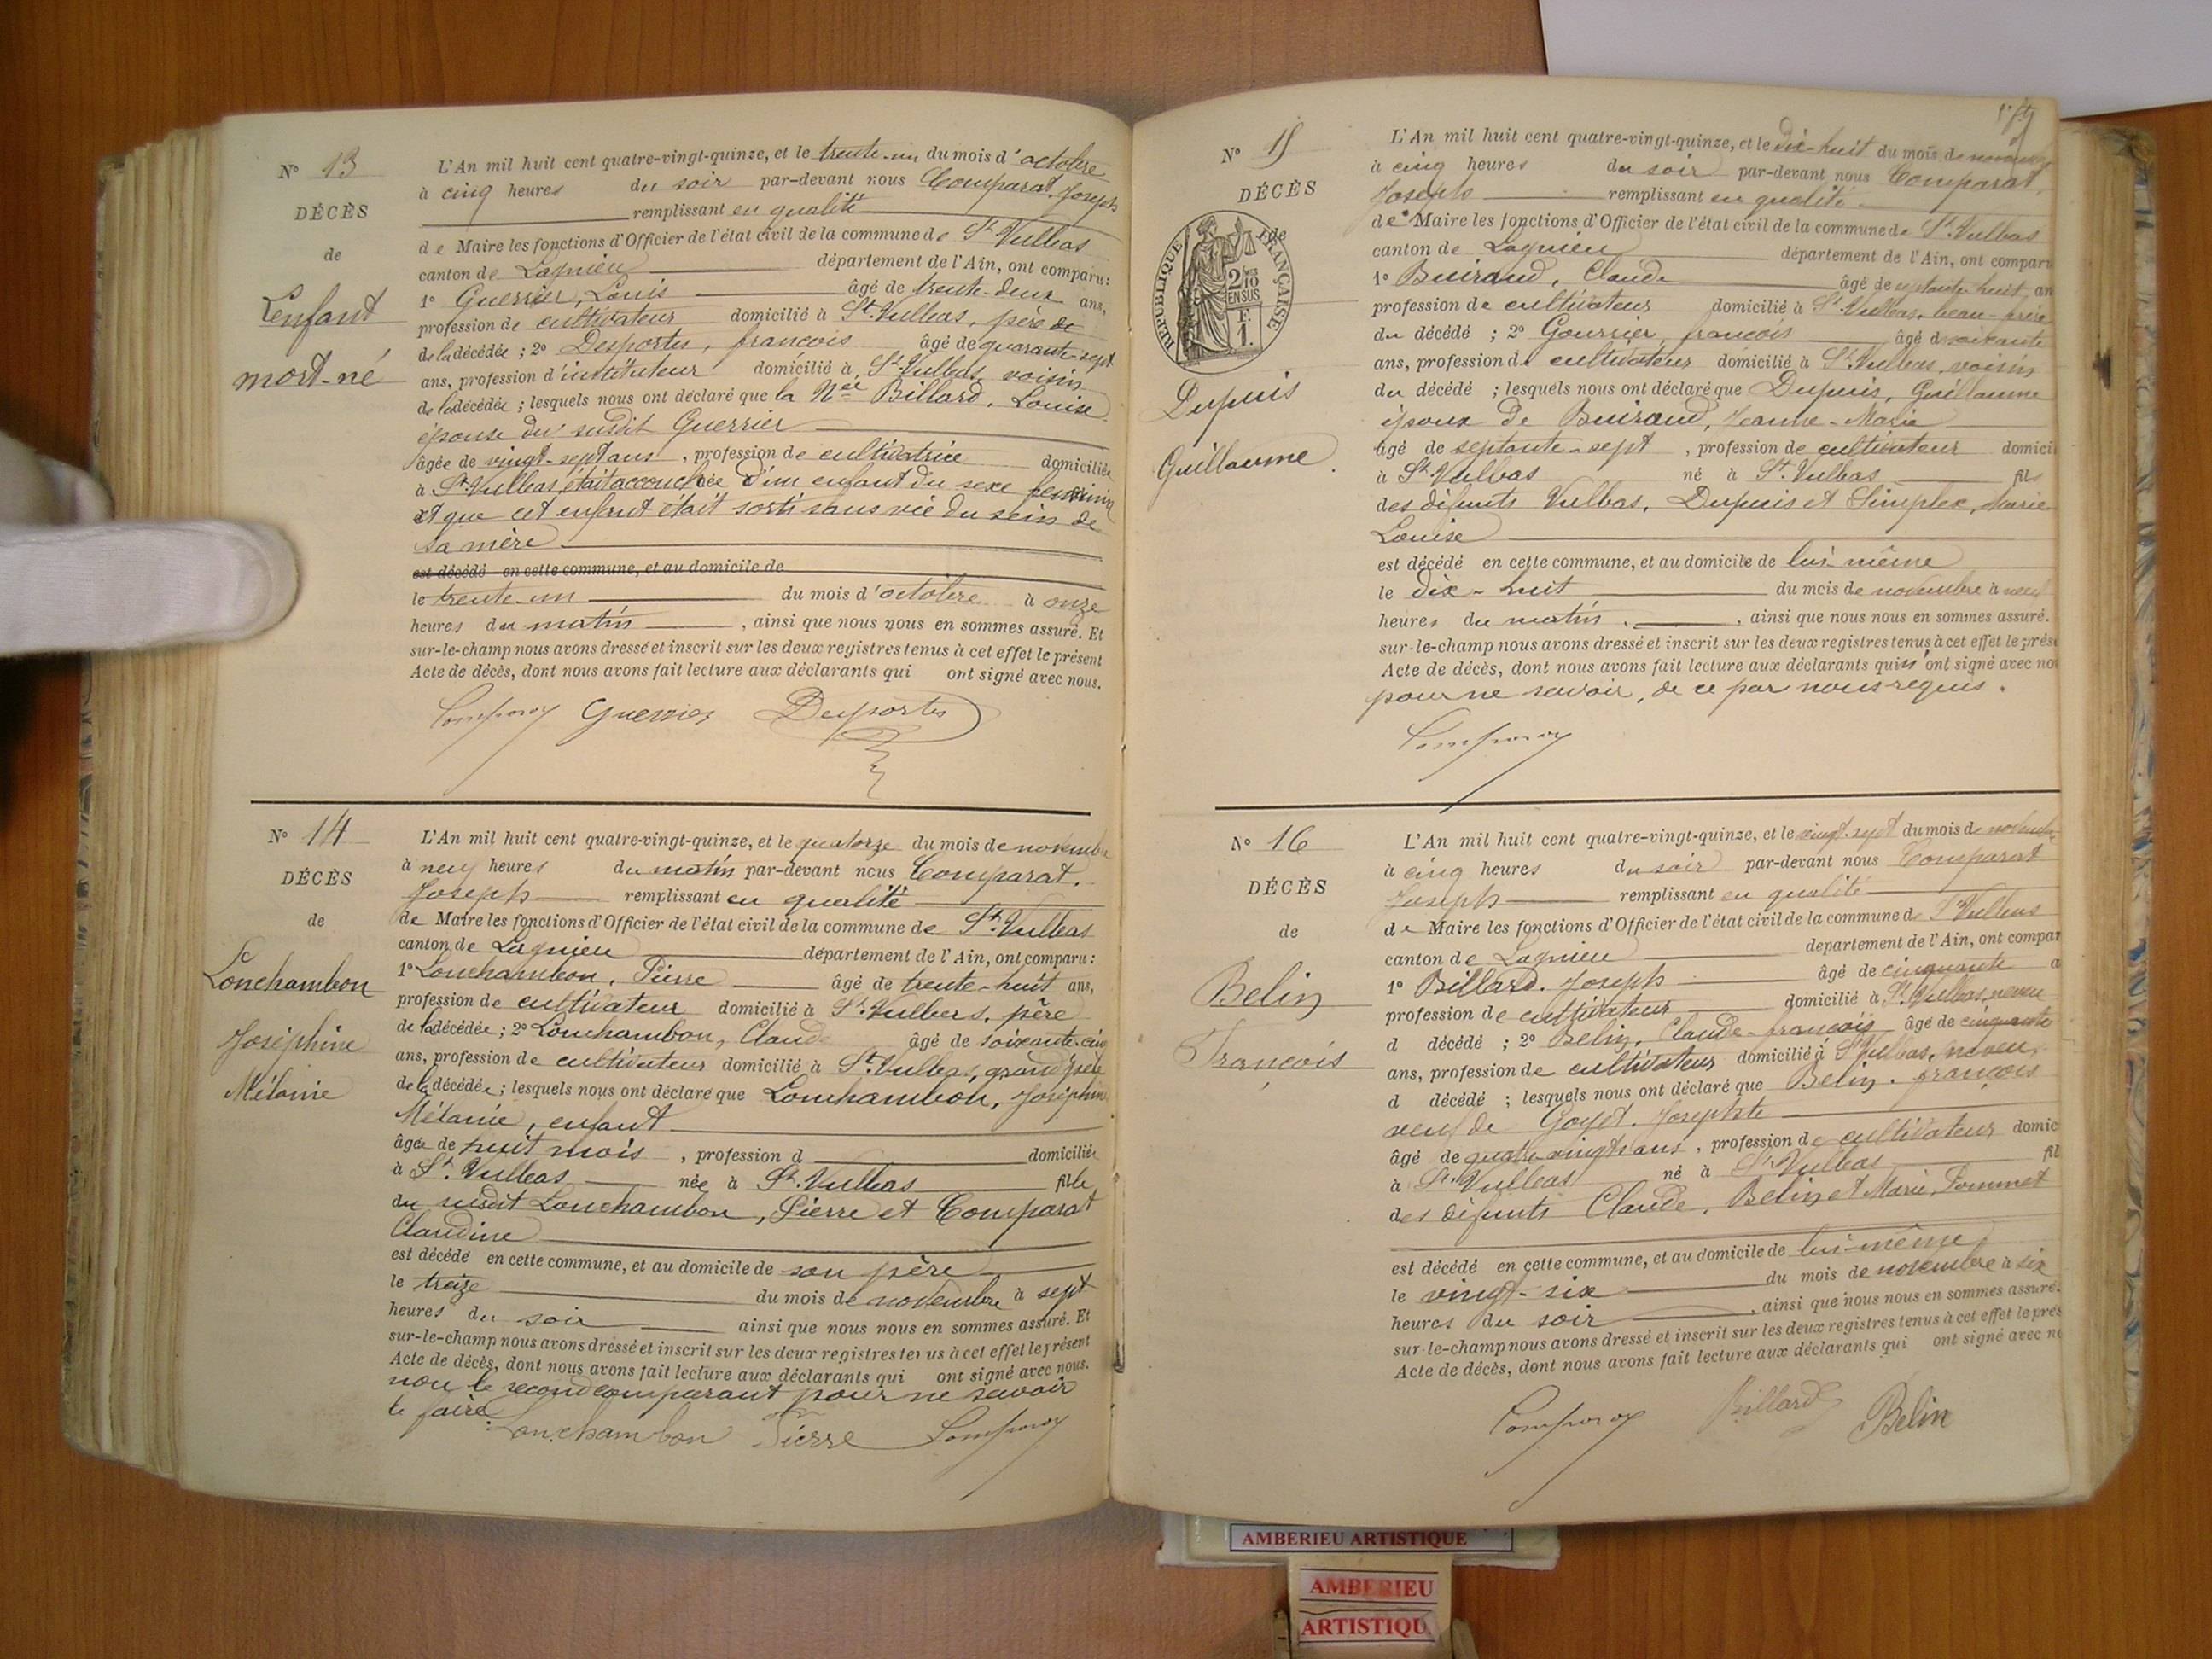 N° 13
DÉCÈS
de
L'enfant
mort-né
L'An mil huit cent quatre-vingt-quinze, et le trente-un du mois d'octobre
à cinq heures du soir par-devant nous Comparat, Joseph
remplissant en qualité
de Maire les fonctions d'Officier de l'état civil de la commune de St Vulbas
canton de Lagnieu département de l'Ain, ont comparu:
1° Guerrier, Louis âgé de trente-deux ans,
profession de cultivateur domicilié à St. Vulbas, père de
de la décédée ; 2° Desportes, françois âgé de quarante-sept
ans, profession d'instituteur domicilié à St. Vulbas, voisin
de la décédée ; lesquels nous ont déclaré que la Née Billard, Louise
épouse du susdit Guerrier
âgée de vingt-sept ans, profession de cultivatrice domiciliée
à St. Vulbas, était accouchée d'un enfant du sexe feminin
et que cet enfant était sorti sans vie du sein de
sa mère
est décédé en cette commune, et au domicile de
le trente-un du mois d'octobre à onze
heures du matin, ainsi que nous nous en sommes assuré. Et
sur-le-champ nous avons dressé et inscrit sur les deux registres tenus à cet effet le présent
Acte de décès, dont nous avons fait lecture aux déclarants qui ont signé avec nous.
Comparat Guerrier Desportes
N° 14
DÉCÈS
de
Lonchambon
Joséphine
Mélanie
L'An mil huit cent quatre-vingt-quinze, et le quatorze du mois de novembre
à neuf heures du matin par-devant nous Comparat,
Joseph remplissant en qualité
de Maire les fonctions d'Officier de l'état civil de la commune de St. Vulbas
canton de Lagnieu département de l'Ain, ont comparu:
1° Lonchambon, Pierre âgé de trente-huit ans,
profession de cultivateur domicilié à St. Vulbas, père
de la décédée ; 2° Lonchambon, Claude âgé de soixante-cinq
ans, profession de cultivateur domicilié à St. Vulbas, grand père
de la décédée ; lesquels nous ont déclaré que Lonchambon, Joséphine
Mélanie, enfant
âgée de huit mois, profession d domiciliée
à St. Vulbas née à St. Vulbas fille
du susdit Lonchambon, Pierre et Comparat
Claudine
est décédé en cette commune, et au domicile de son père
le treize du mois de novembre à sept
heures du soir ainsi que nous nous en sommes assuré. Et
sur-le-champ nous avons dressé et inscrit sur les deux registres tenus à cet effet le présent
Acte de décès, dont nous avons fait lecture aux déclarants qui ont signé avec nous.
non le second comparant pour ne savoir
le faire
Lonchambon Pierre Comparat
N° 15
DÉCÈS
de
RÉPUBLIQUE FRANÇAISE
2/10 EN SUS
F.
1.
Dupuis
Guillaume
L'An mil huit cent quatre-vingt-quinze, et le dix-huit du mois de novembre
à cinq heures du soir par-devant nous Comparat,
Joseph remplissant en qualité
de Maire les fonctions d'Officier de l'état civil de la commune de St. Vulbas
canton de Lagnieu département de l'Ain, ont comparu
1° Buirand, Claude âgé de septante huit an
profession de cultivateur domicilié à St. Vulbas, beau-frère
du décédé ; 2° Gourrier, françois âgé de soixante
ans, profession de cultivateur domicilié à St. Vulbas, voisin
du décédé ; lesquels nous ont déclaré que Dupuis, Guillaume
époux de Buirand, Jeanne-Marie
âgé de septante-sept, profession de cultivateur domici
à St. Vulbas né à St. Vulbas fils
des défunts Vulbas, Dupuis et Simplex, Marie
Louise
est décédé en cette commune, et au domicile de lui-même
le dix-huit du mois de novembre à neuf
heures du matin, ainsi que nous nous en sommes assuré.
sur-le-champ nous avons dressé et inscrit sur les deux registres tenus à cet effet le prése
Acte de décès, dont nous avons fait lecture aux déclarants qui n'ont signé avec no
pour ne savoir, de ce par nous requis.
Comparat
N° 16
DÉCÈS
de
Belin
François
L'An mil huit cent quatre-vingt-quinze, et le vingt-sept du mois de novembre
à cinq heures du soir par-devant nous Comparat
Joseph remplissant en qualité
de Maire les fonctions d'Officier de l'état civil de la commune de St Vulbas
canton de Lagnieu département de l'Ain, ont compar
1° Billard, Joseph âgé de cinquante a
profession de cultivateur domicilié à St. Vulbas, neveu
d décédé ; 2° Belin, Claude-françois âgé de cinquante
ans, profession de cultivateur domicilié à St. Vulbas, neveu
d décédé ; lesquels nous ont déclaré que Belin, françois
veuf de Goyet, Josephte
âgé de quatre-vingts ans, profession de cultivateur domic
à St. Vulbas né à St. Vulbas fil
des défunts Claude, Belin et Marie, Pommet
est décédé en cette commune, et au domicile de lui-même
le vingt-six du mois de novembre à six
heures du soir, ainsi que nous nous en sommes assuré.
sur-le-champ nous avons dressé et inscrit sur les deux registres tenus à cet effet le prés
Acte de décès, dont nous avons fait lecture aux déclarants qui ont signé avec no
Comparat Billard Belin
AMBERIEU ARTISTIQUE
AMBERIEU
ARTISTIQU